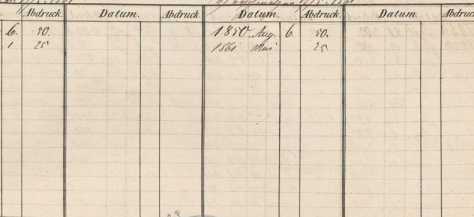 Abdruck. Datum. Abdruck Datum. Abdruck. Datum. Abdruck
6. 50. 1850 Aug 6. 50.
1. 25 1861 Mai 25.